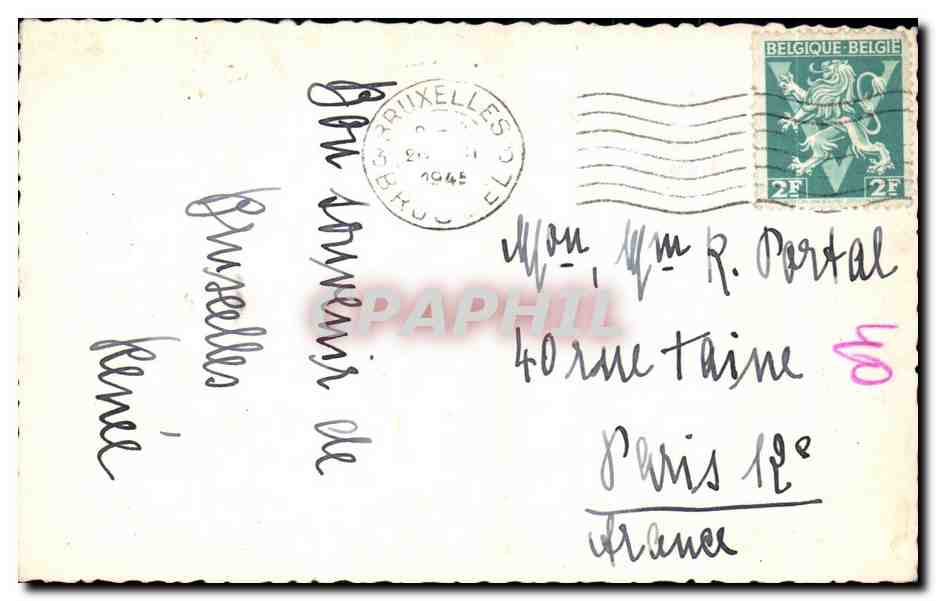 Bon souvenir de
Bruxelles
Renée
BRUXELLES
1945
BELGIQUE-BELGIË
2F 2F
Mon, Mm R. Portal
40 rue Taine
40
Paris 12e
France
CPAPHIL